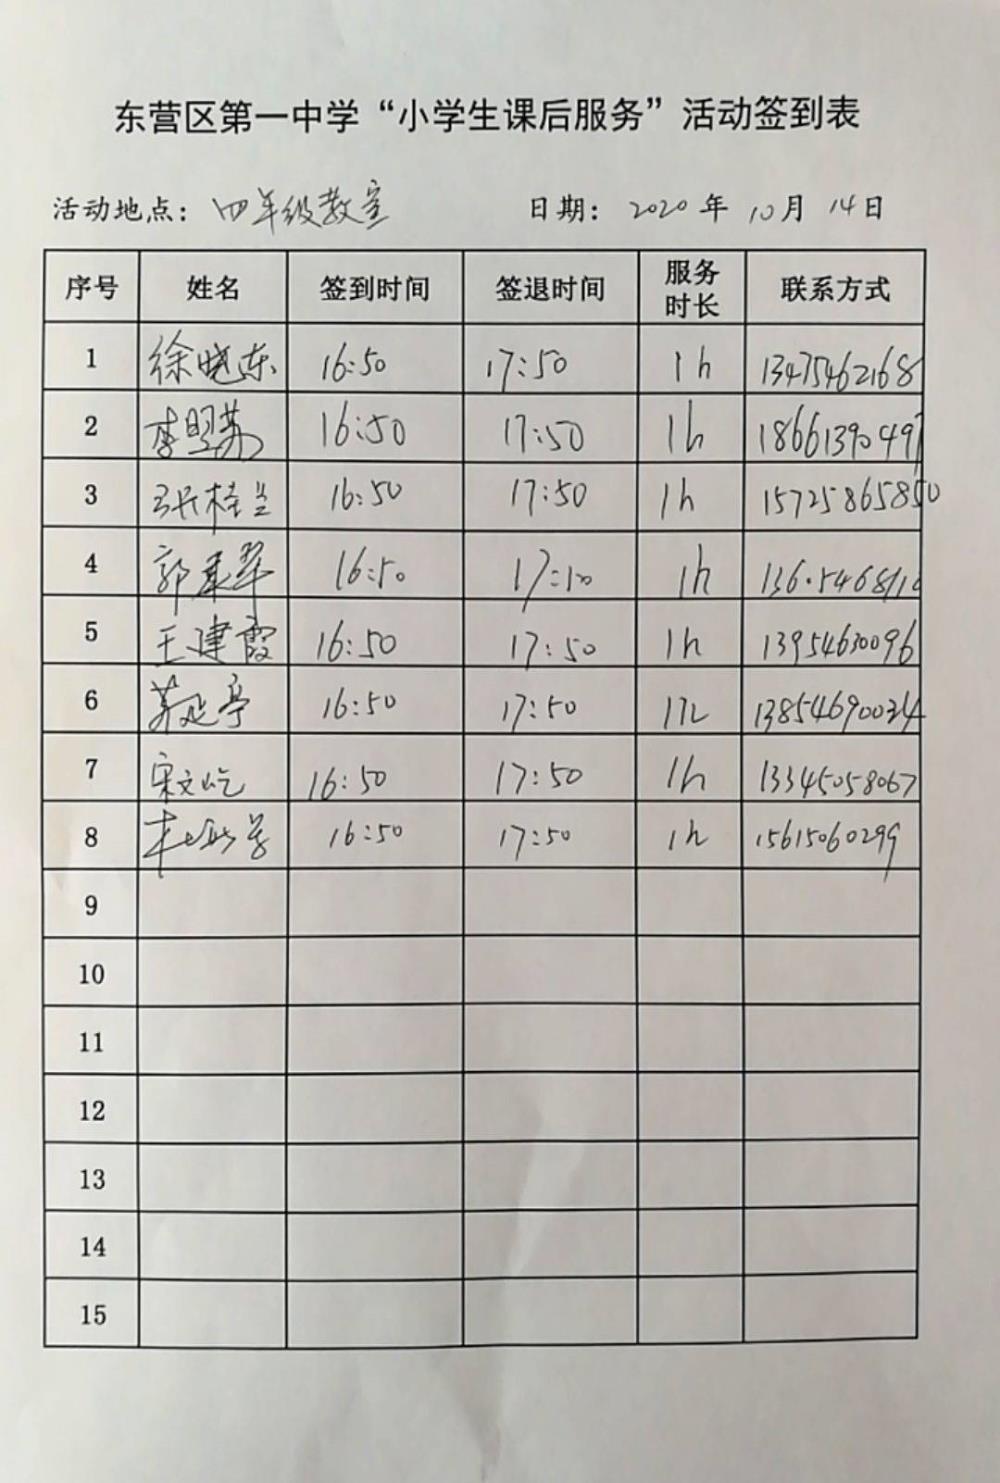 东营区第一中学“小学生课后服务”活动签到表
活动地点：四年级教室 日期：2020年10月14日
序号 姓名 签到时间 签退时间 服务时长 联系方式
1 徐晓东 16:50 17:50 1h 13475462168
2 李 16:50 17:50 1h 1866139049
3 张桂兰 16:50 17:50 1h 15725865850
4 郭翠 16:50 17:50 1h
5 王建霞 16:50 17:50 1h 13954630096
6 苏延亭 16:50 17:50 1h 13854690024
7 宋文屹 16:50 17:50 1h 13345058067
8 16:50 17:50 1h 15615060299
9
10
11
12
13
14
15